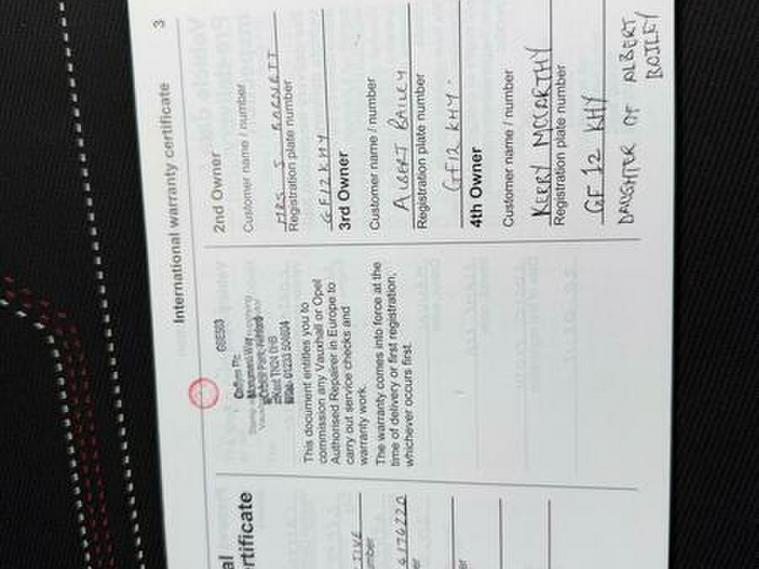 International warranty certificate
3
al
ertificate
TIVE
mber
6176220
er
er
G8E503
TN24 0HB
01233 504604
This document entitles you to
commission any Vauxhall or Opel
Authorised Repairer in Europe to
carry out service checks and
warranty work.
The warranty comes into force at the
time of delivery or first registration,
whichever occurs first.
2nd Owner
Customer name / number
MRS S BARNETT
Registration plate number
GF12KHY
3rd Owner
Customer name / number
ALBERT BAILEY
Registration plate number
GF12 KHY.
4th Owner
Customer name / number
KERRY MCCARTHY
Registration plate number
GF 12 KHY
DAUGHTER OF ALBERT
BAILEY